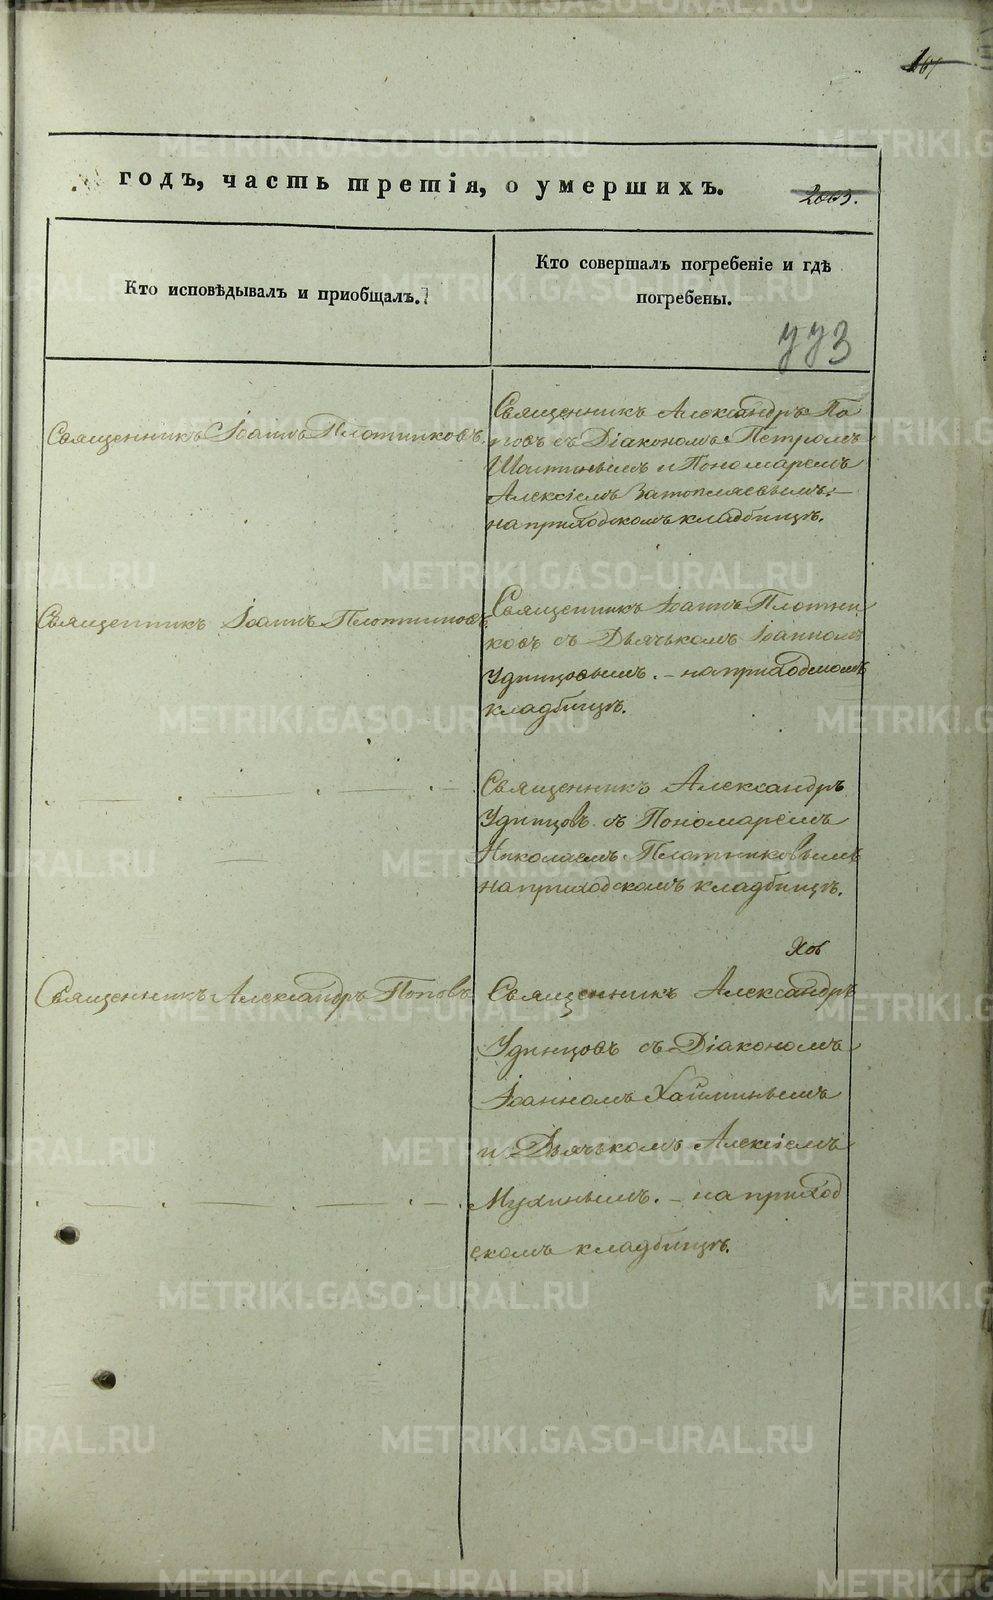 годъ, часть третія, о умершихъ.
2003.
Кто исповѣдывалъ и пріобщалъ.
Кто совершалъ погребеніе и гдѣ
погребены.
773
Священникъ Іоаннъ Плотниковъ.
Священникъ Александръ По
повъ съ Діакономъ Петромъ
и Пономаремъ
Алексіемъ
на приходскомъ кладбищѣ.
Священникъ Іоаннъ Плотниковъ
Священникъ Іоаннъ Плотни
ковъ съ Дьячькомъ Іоанномъ
Удинцовымъ. – на приходскомъ
кладбищѣ.
Священникъ Александръ
Удинцовъ съ Пономаремъ
Николаемъ Плотниковымъ
на приходскомъ кладбищѣ.
Священникъ Александръ Поповъ
Священникъ Александръ
Удинцовъ съ Діакономъ
Іоанномъ
и Дьячькомъ Алексіемъ
Мухинымъ. – на приход
скомъ кладбищѣ.
METRIKI.GASO-URAL.RU